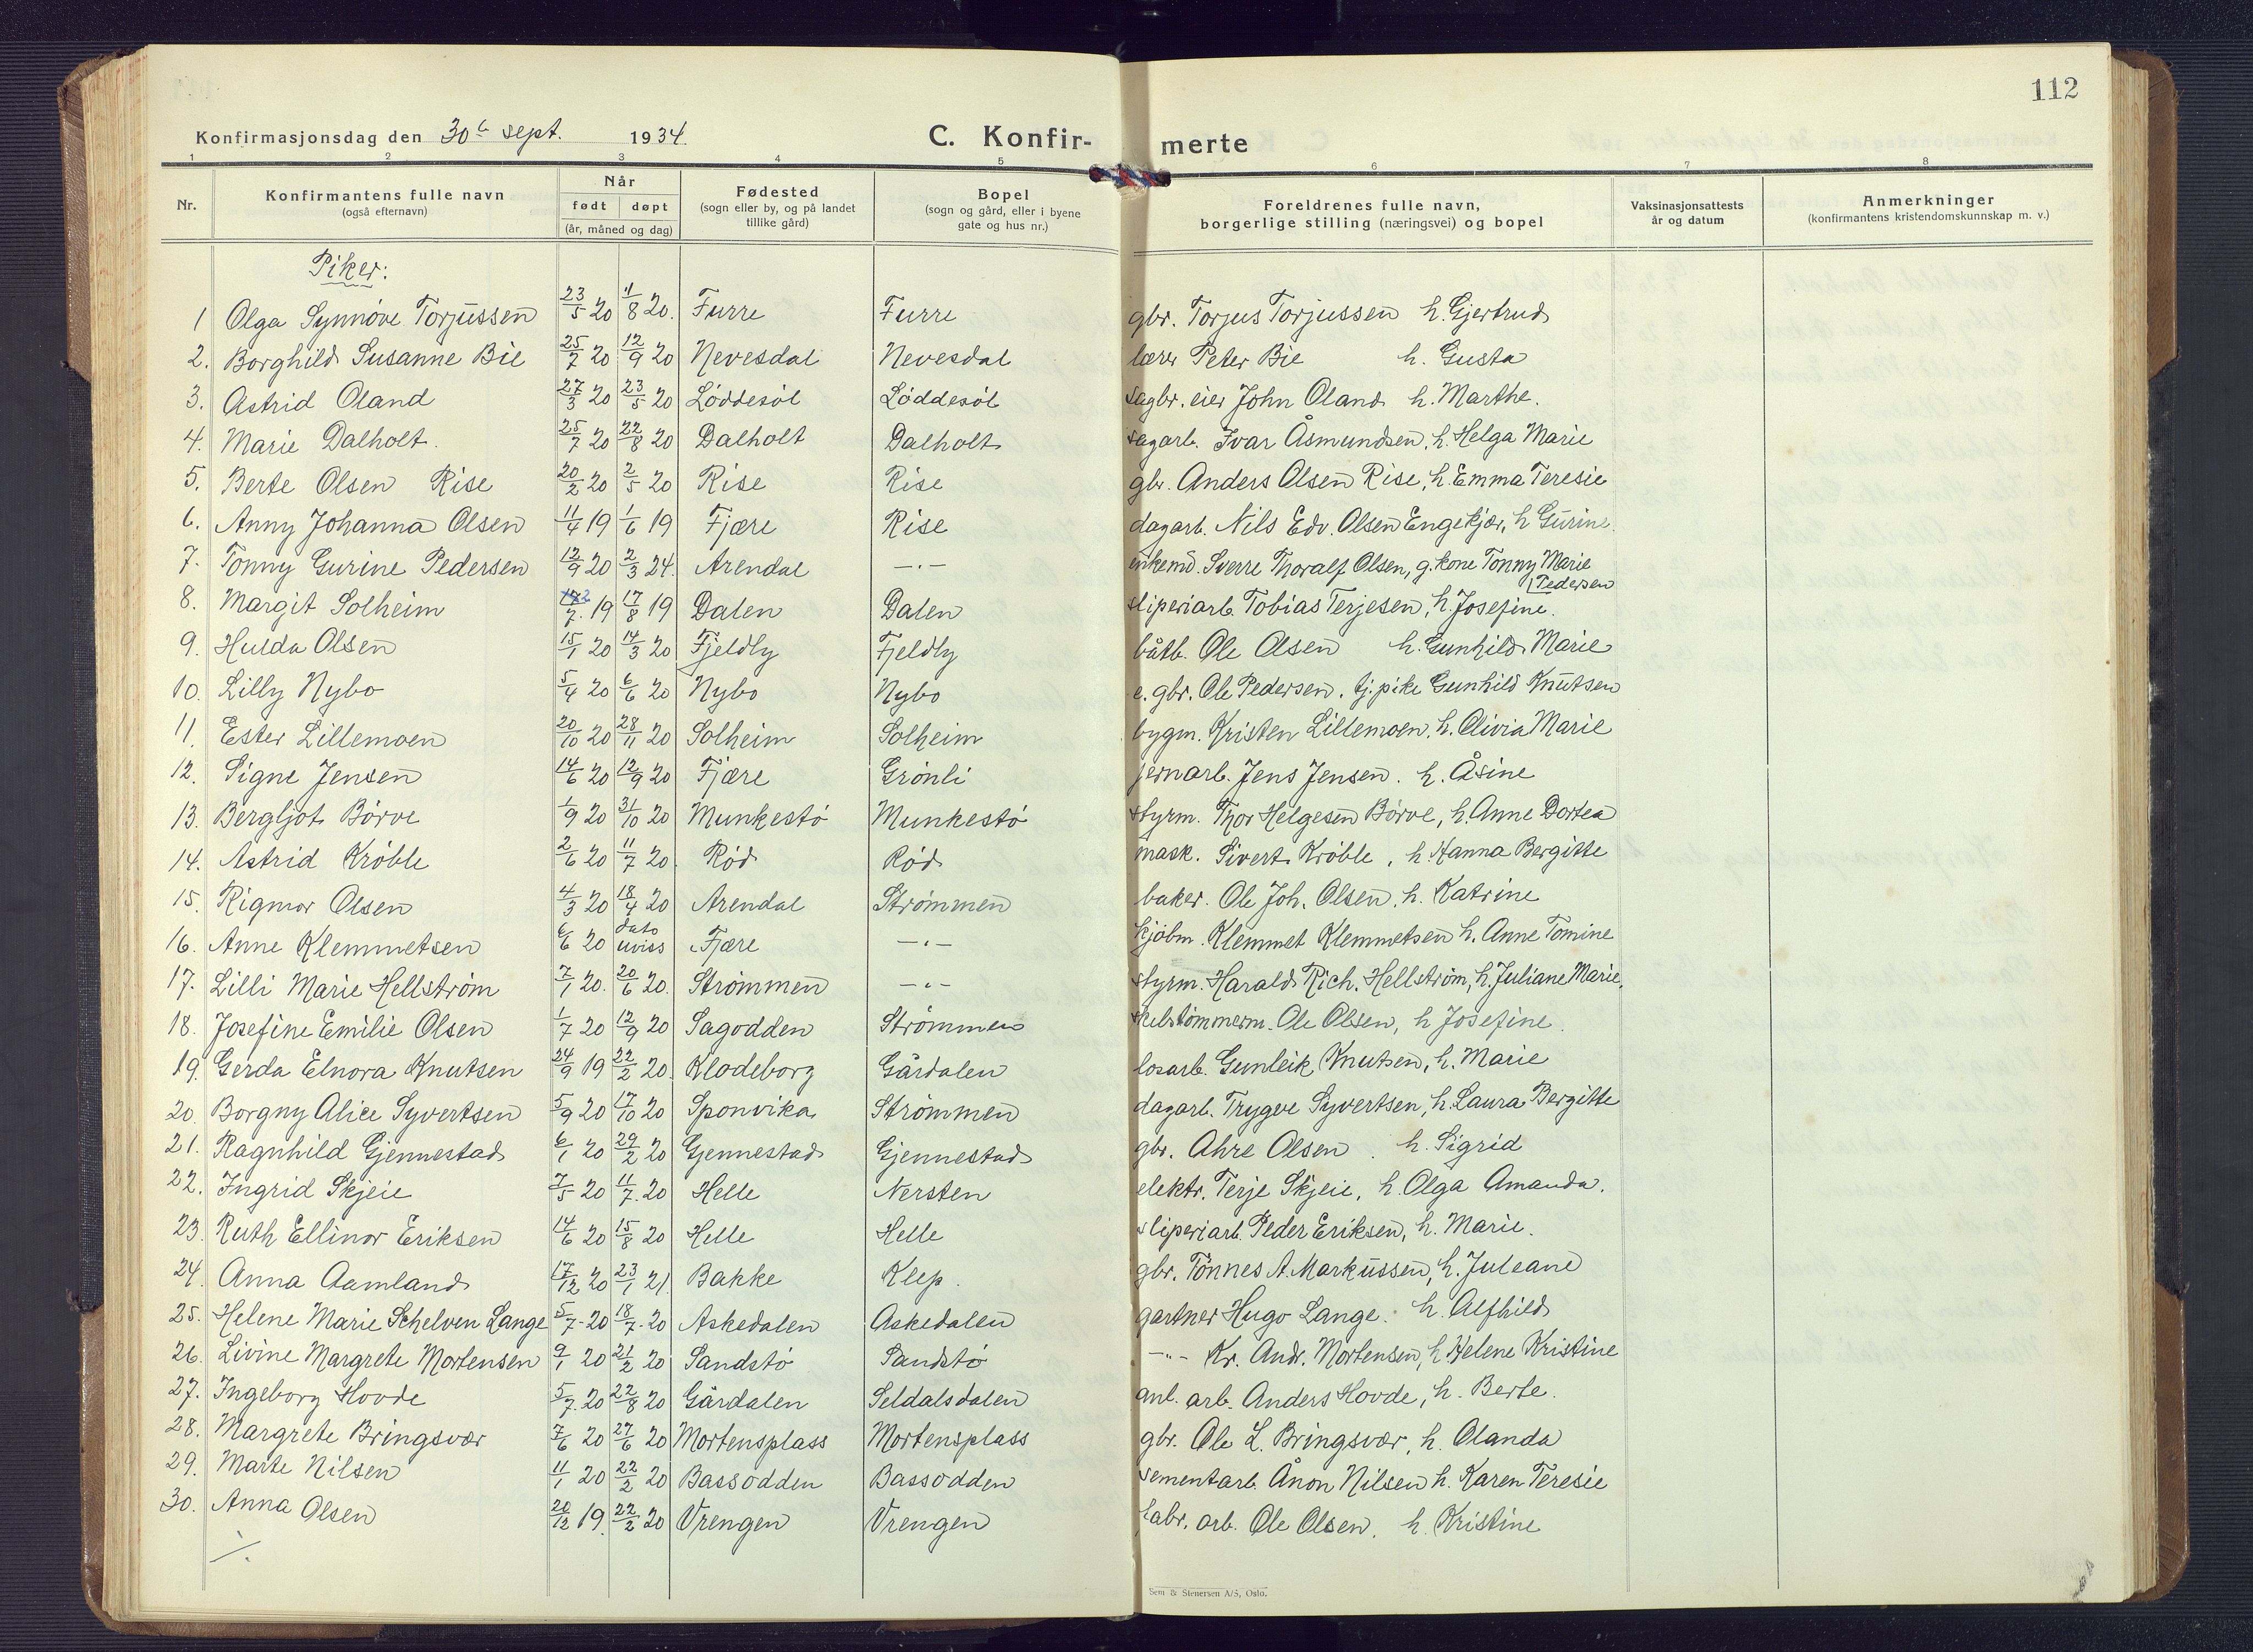 112
Konfirmasjonsdag den 30te sept. 1934. C. Konfir- merte
1 2 3 4 5 6 7 8
Nr. Konfirmantens fulle navn (også efternavn) Når født døpt (år, måned og dag) Fødested (sogn eller by, og på landet tillike gård) Bopel (sogn og gård, eller i byene gate og hus nr.) Foreldrenes fulle navn, borgerlige stilling (næringsvei) og bopel Vaksinasjonsattests år og datum Anmerkninger (konfirmantens kristendomskunnskap m. v.)
Piker:
1 Olga Synnøve Torjussen 23/5 20 11/8 20. Furre Furre gbr. Torjus Torjussen h. Gjertrud
2. Borghild Susanne Bie 25/7 20 12/9 20 Nevesdal Nevesdal lærer Peter Bie h. Gusta
3. Astrid Oland 27/3 20 23/5 20 Løddesøl Løddesøl sagbr. eier John Oland h. Marthe.
4. Marie Dalholt. 25/7 20 22/8 20 Dalholt Dalholt sagarb. Ivar Åsmundsen, h. Helga Marie
5. Berte Olsen Rise 20/2 20 2/5 20 Rise Rise gbr. Anders Olsen Rise, h. Emma Teresie
6. Anny Johanna Olsen 11/4 19 1/6 19 Fjære Rise dagarb. Nils Edv. Olsen Engekjær, h Gurine.
7. Tonny Gurine Pedersen 12/9 20 2/3 24. Arendal —〃— enkemd. Sverre Thoralf Olsen, g. kone Tonny Marie Pedersen
8. Margit Solheim /7. 19 17/8 19 Dalen Dalen sliperiarb. Tobias Terjesen, h. Josefine.
9. Hulda Olsen 15/1 20 14/3 20 Fjeldly Fjeldly båtb. Ole Olsen h. Gunhild Marie
10. Lilly Nybo 5/4 20 6/6 20 Nybo Nybo e. gbr. Ole Pedersen. tj. pike Gunhild Knutsen
11. Ester Lillemoen 20/10 20 28/11 20 Solheim Solheim bygm. Kristen Lillemoen, h. Olivia Marie
12. Signe Jensen 14/6 20 12/9 20 Fjære Grønli jernarb. Jens Jensen. h. Åsine
13. Bergljot Børve 1/9 20 31/10 20 Munkestø Munkestø styrm. Thor Helgesen Børve, h. Anne Dortea
14. Astrid Krøble 2/6 20 11/7 20. Rød Rød mask. Sivert Krøble, h. Hanna Bergitte
15. Rigmor Olsen 4/3 20 18/4 20 Arendal Strømmen baker. Ole Joh. Olsen. h. Katrine
16. Anne Klemmetsen 6/6 20 dato uviss Fjære —〃— kjøbm. Klemmet Klemmetsen h. Anne Tomine
17. Lilli Marie Hellstrøm 7/1 20. 20/6 20. Strømmen —〃— styrm. Harald Rich. Hellstrøm, h. Juliane Marie.
18. Josefine Emilie Olsen 1/7 20 12/9 20 Sagodden Strømmen Ole Olsen, h Josefine.
19. Gerda Elnora Knutsen 24/9 19 22/2 20. Klodeborg Gårdalen losarb. Gunleik Knutsen, h. Marie
20. Borgny Alice Syvertsen 5/9 20 17/10 20 Sponvika Strømmen dagarb. Trygve Syvertsen, h. Laura Bergitte
21. Ragnhild Gjennestad 6/1 20 29/2 20 Gjennestad Gjennestad gbr. Ahre Olsen. h. Sigrid
22. Ingrid Skjeie 7/5 20 11/7. 20 Helle Nersten elektr. Terje Skjeie, h. Olga Amanda.
23. Ruth Ellinor Eriksen 14/6 20 15/8 20 Helle Helle sliperiarb. Peder Eriksen, h. Marie.
24. Anna Aamland 17/12 20 23/1 21. Bakke Klep. gbr. Tønnes A. Markussen, h. Juleane
25. Helene Marie Schelven Lange 5/7 - 20 18/7 - 20 Askedalen Askedalen gartner Hugo Lange. h. Alfhild
26. Livine Margrete Mortensen 9/1 20 21/2 20 Sandstø Sandstø —〃— Kr. Andr. Mortensen, h. Helene Kristine
27. Ingeborg Hovde 5/7. 20 22/8 20 Gårdalen Seldalsdalen anl. arb. Anders Hovde, h. Berte.
28. Margrete Bringsvær 7/6 20 27/6 20 Mortensplass Mortensplass gbr. Ole L. Bringsvær, h. Olanda
29. Marte Nilsen 11/1 20 22/2 20 Bassodden Bassodden sementarb. Ånon Nilsen h. Karen Teresie
30. Anna Olsen 20/12 19. 22/2 20 Vrengen Vrengen fabr. arb. Ole Olsen. h. Kristine
Sem & Stenersen A/S, Oslo.